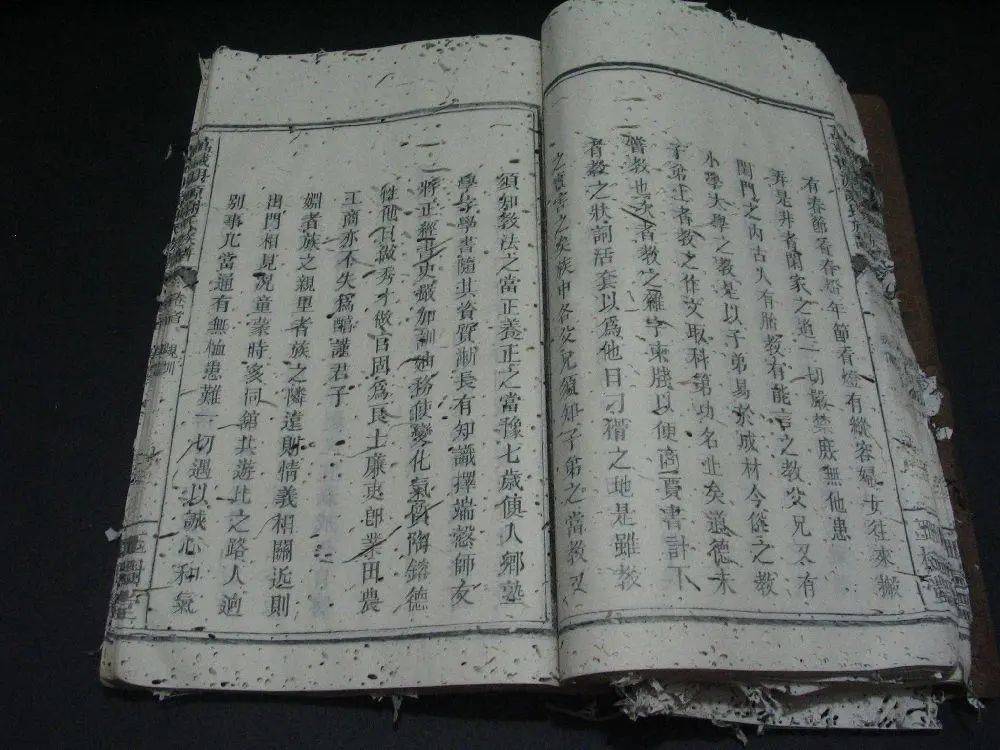 有春節看春燈年節看燈有縱容婦女往來搬
弄是非者閨家之道一切嚴禁庶無他患
一閨門之內古人有胎教有能言之教父兄又有
小學大學之教是以子弟易於成材今僅之教
子弟上者教之作文取科第功名止矣道德未
嘗教也次者教之雜字柬牋以便商賈書計下
者教之狀詞活套以為他日刁猾之地是雖教
之實害之矣族中各父兄須知子弟之當教又
須知教法之當正養正之當豫七歲便入鄉塾
學字學書隨其資質漸長有知識擇端慤師友
將正經書史嚴加訓迪務使變化氣質陶鎔德
性他日做秀才做官固為良士廉吏即業田農
工商亦不失為醇謹君子
一姻者族之親里者族之隣遠則情義相關近則
出門相見況童蒙時多同館共遊此之路人迥
別事凡當通有無恤患難一切遇以誠心和氣